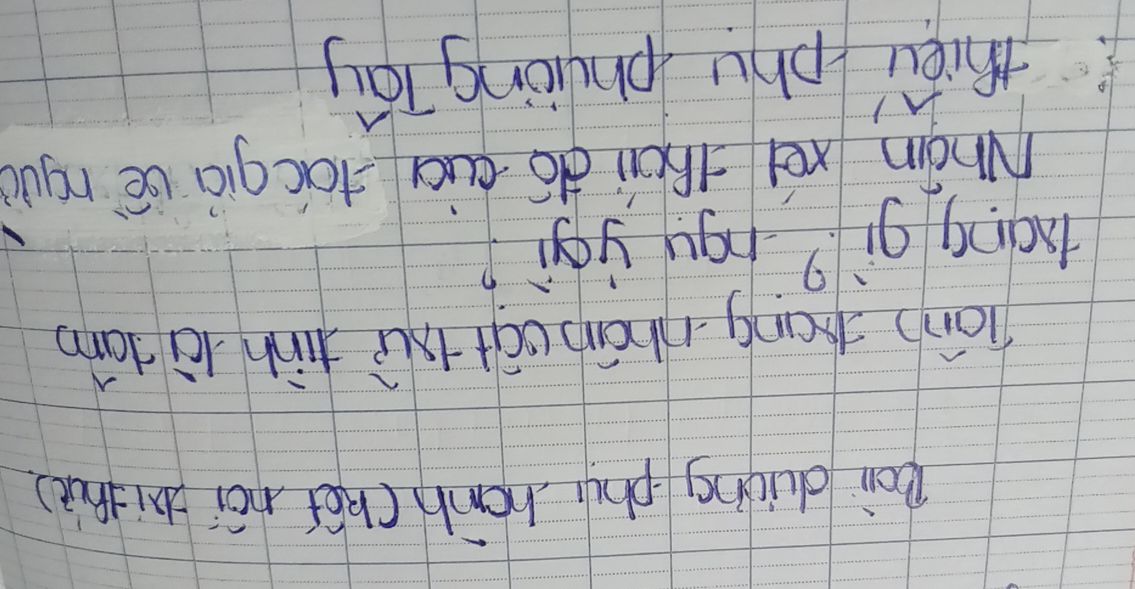 Bài dương phụ hành (kết nối tri thức)
Tâm trạng nhân vật trữ tình là tâm
trạng gì? ngụ ý gì?
Nhận xét thái độ của tác giả về người
thiếu phụ phương Tây